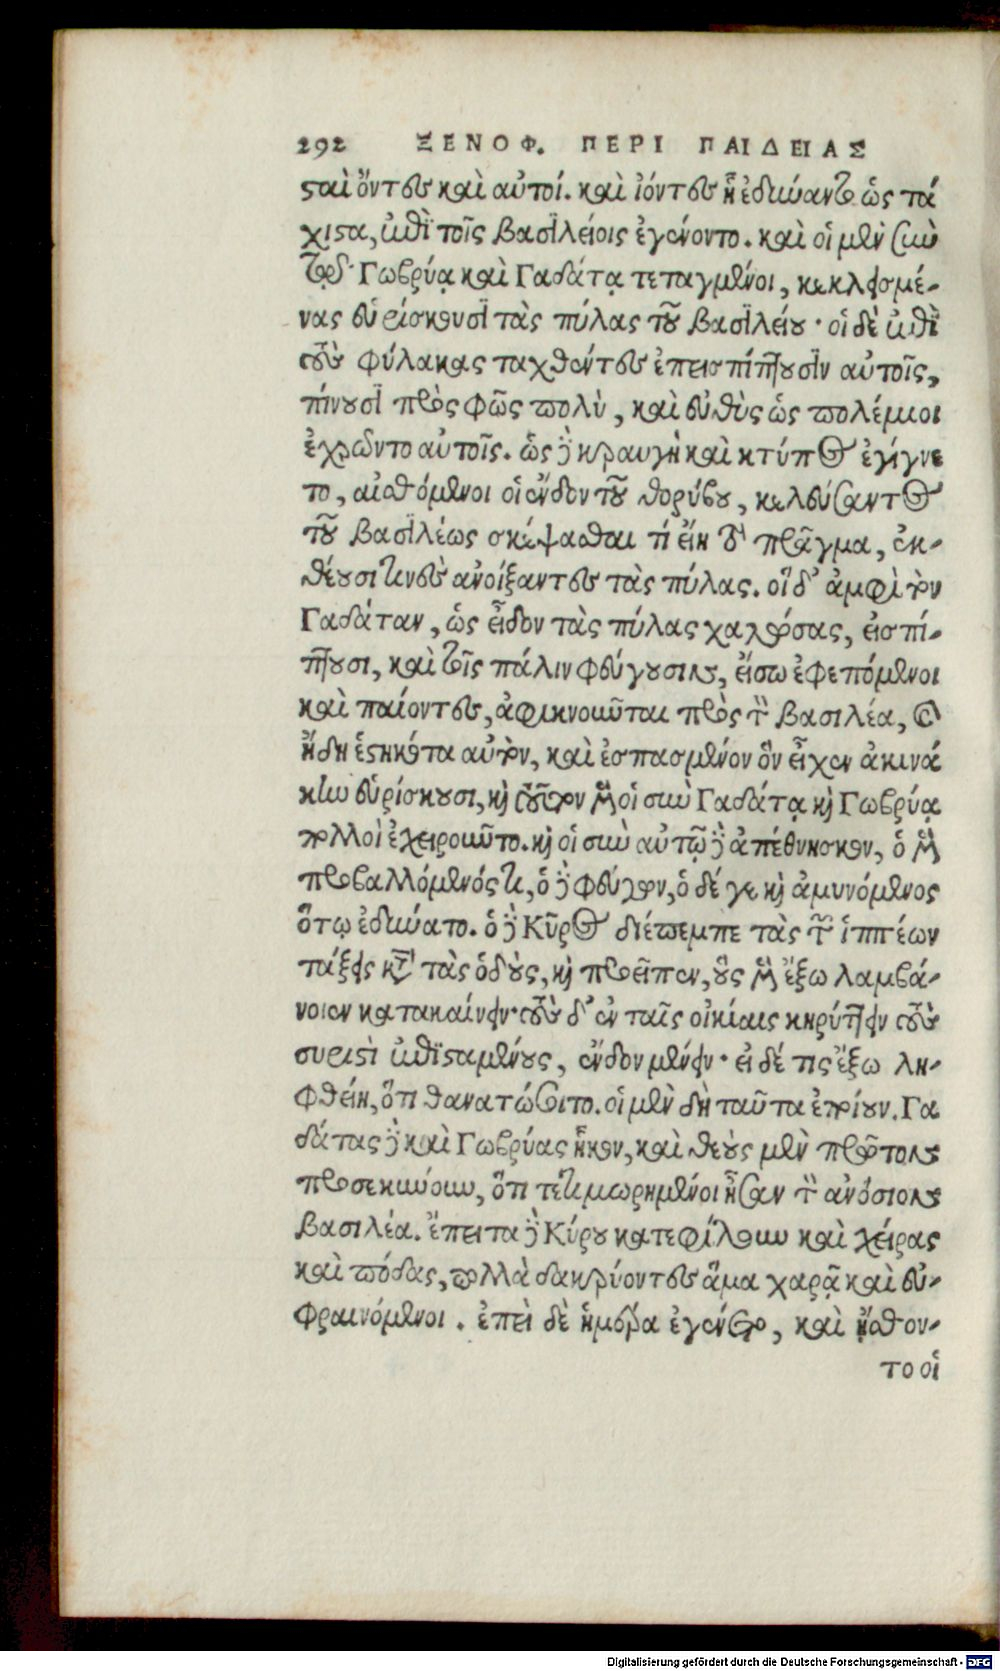 292 ΞΕΝΟΦ. ΠΕΡΙ ΠΑΙΔΕΙΑΣ
σταὶ ὄντες καὶ αὐτοί. καὶ ἰόντες ᾗ ἐδιώαντο ὡς τά
χιστα, ἐπὶ τοῖς βασιλείοις ἐγένοντο. καὶ οἱ μὲν σὺν
τῷδε Γωβρύᾳ καὶ Γαδάτᾳ τεταγμένοι, κεκλεισμέ-
νας εὑρίσκουσι τὰς πύλας τοῦ βασιλείου· οἱ δὲ ἐπὶ
τοὺς φύλακας ταχθέντες ἐπεισπίπτουσιν αὐτοῖς,
πίνουσι πρὸς φῶς πολὺ, καὶ εὐθὺς ὡς πολέμιοι
ἐχρῶντο αὐτοῖς. ὡς δὲ κραυγὴ καὶ κτύπος ἐγίγνε
το, αἰσθόμενοι οἱ ἔνδον τοῦ θορύβου, κελεύσαντος
τοῦ βασιλέως σκέψασθαι τί εἴη τὸ πρᾶγμα, ἐκ-
θέουσι τινες ἀνοίξαντες τὰς πύλας. οἳ δ' ἀμφὶ τὸν
Γαδάταν, ὡς εἶδον τὰς πύλας χαλώσας, εἰσπί-
πτουσι, καὶ τοῖς πάλιν φεύγουσιν, εἴσω ἐφεπόμενοι
καὶ παίοντες, ἀφικνοῦνται πρὸς τὸν βασιλέα, καὶ
ἤδη ἑστηκότα αὐτὸν, καὶ ἐσπασμένον ὃν εἶχεν ἀκινά
κην εὑρίσκουσι, καὶ τοῦτον μὲν οἱ σὺν Γαδάτᾳ καὶ Γωβρύᾳ
πολλοὶ ἐχειροῦντο. καὶ οἱ σὺν αὐτῷ δὲ ἀπέθνησκον, ὁ μὲν
προβαλλόμενός τι, ὁ δὲ φεύγων, ὁ δέ γε καὶ ἀμυνόμενος
ὅτῳ ἐδύνατο. ὁ δὲ Κῦρος διέπεμπε τὰς τῶν ἱππέων
τάξεις κατὰ τὰς ὁδοὺς, καὶ προεῖπεν, οὓς μὲν ἔξω λαμβά-
νοιεν κατακαίνειν· τοὺς δ' ἐν ταῖς οἰκίαις κηρύττειν τοὺς
συριστὶ ἐπισταμένους, ἔνδον μένειν· εἰ δέ τις ἔξω λη-
φθείη, ὅτι θανατώσοιτο. οἱ μὲν δὴ ταῦτα ἐποίουν. Γα
δάτας δὲ καὶ Γωβρύας ἧκον, καὶ θεοὺς μὲν πρῶτον
προσεκύνουν, ὅτι τετιμωρημένοι ἦσαν τὸν ἀνόσιον
βασιλέα. ἔπειτα δὲ Κύρου κατεφίλουν καὶ χεῖρας
καὶ πόδας, πολλὰ δακρύοντες ἅμα χαρᾷ καὶ εὐ-
φραινόμενοι. ἐπεὶ δὲ ἡμέρα ἐγένετο, καὶ ᾔσθον-
το οἱ
Digitalisierung gefördert durch die Deutsche Forschungsgemeinschaft - DFG